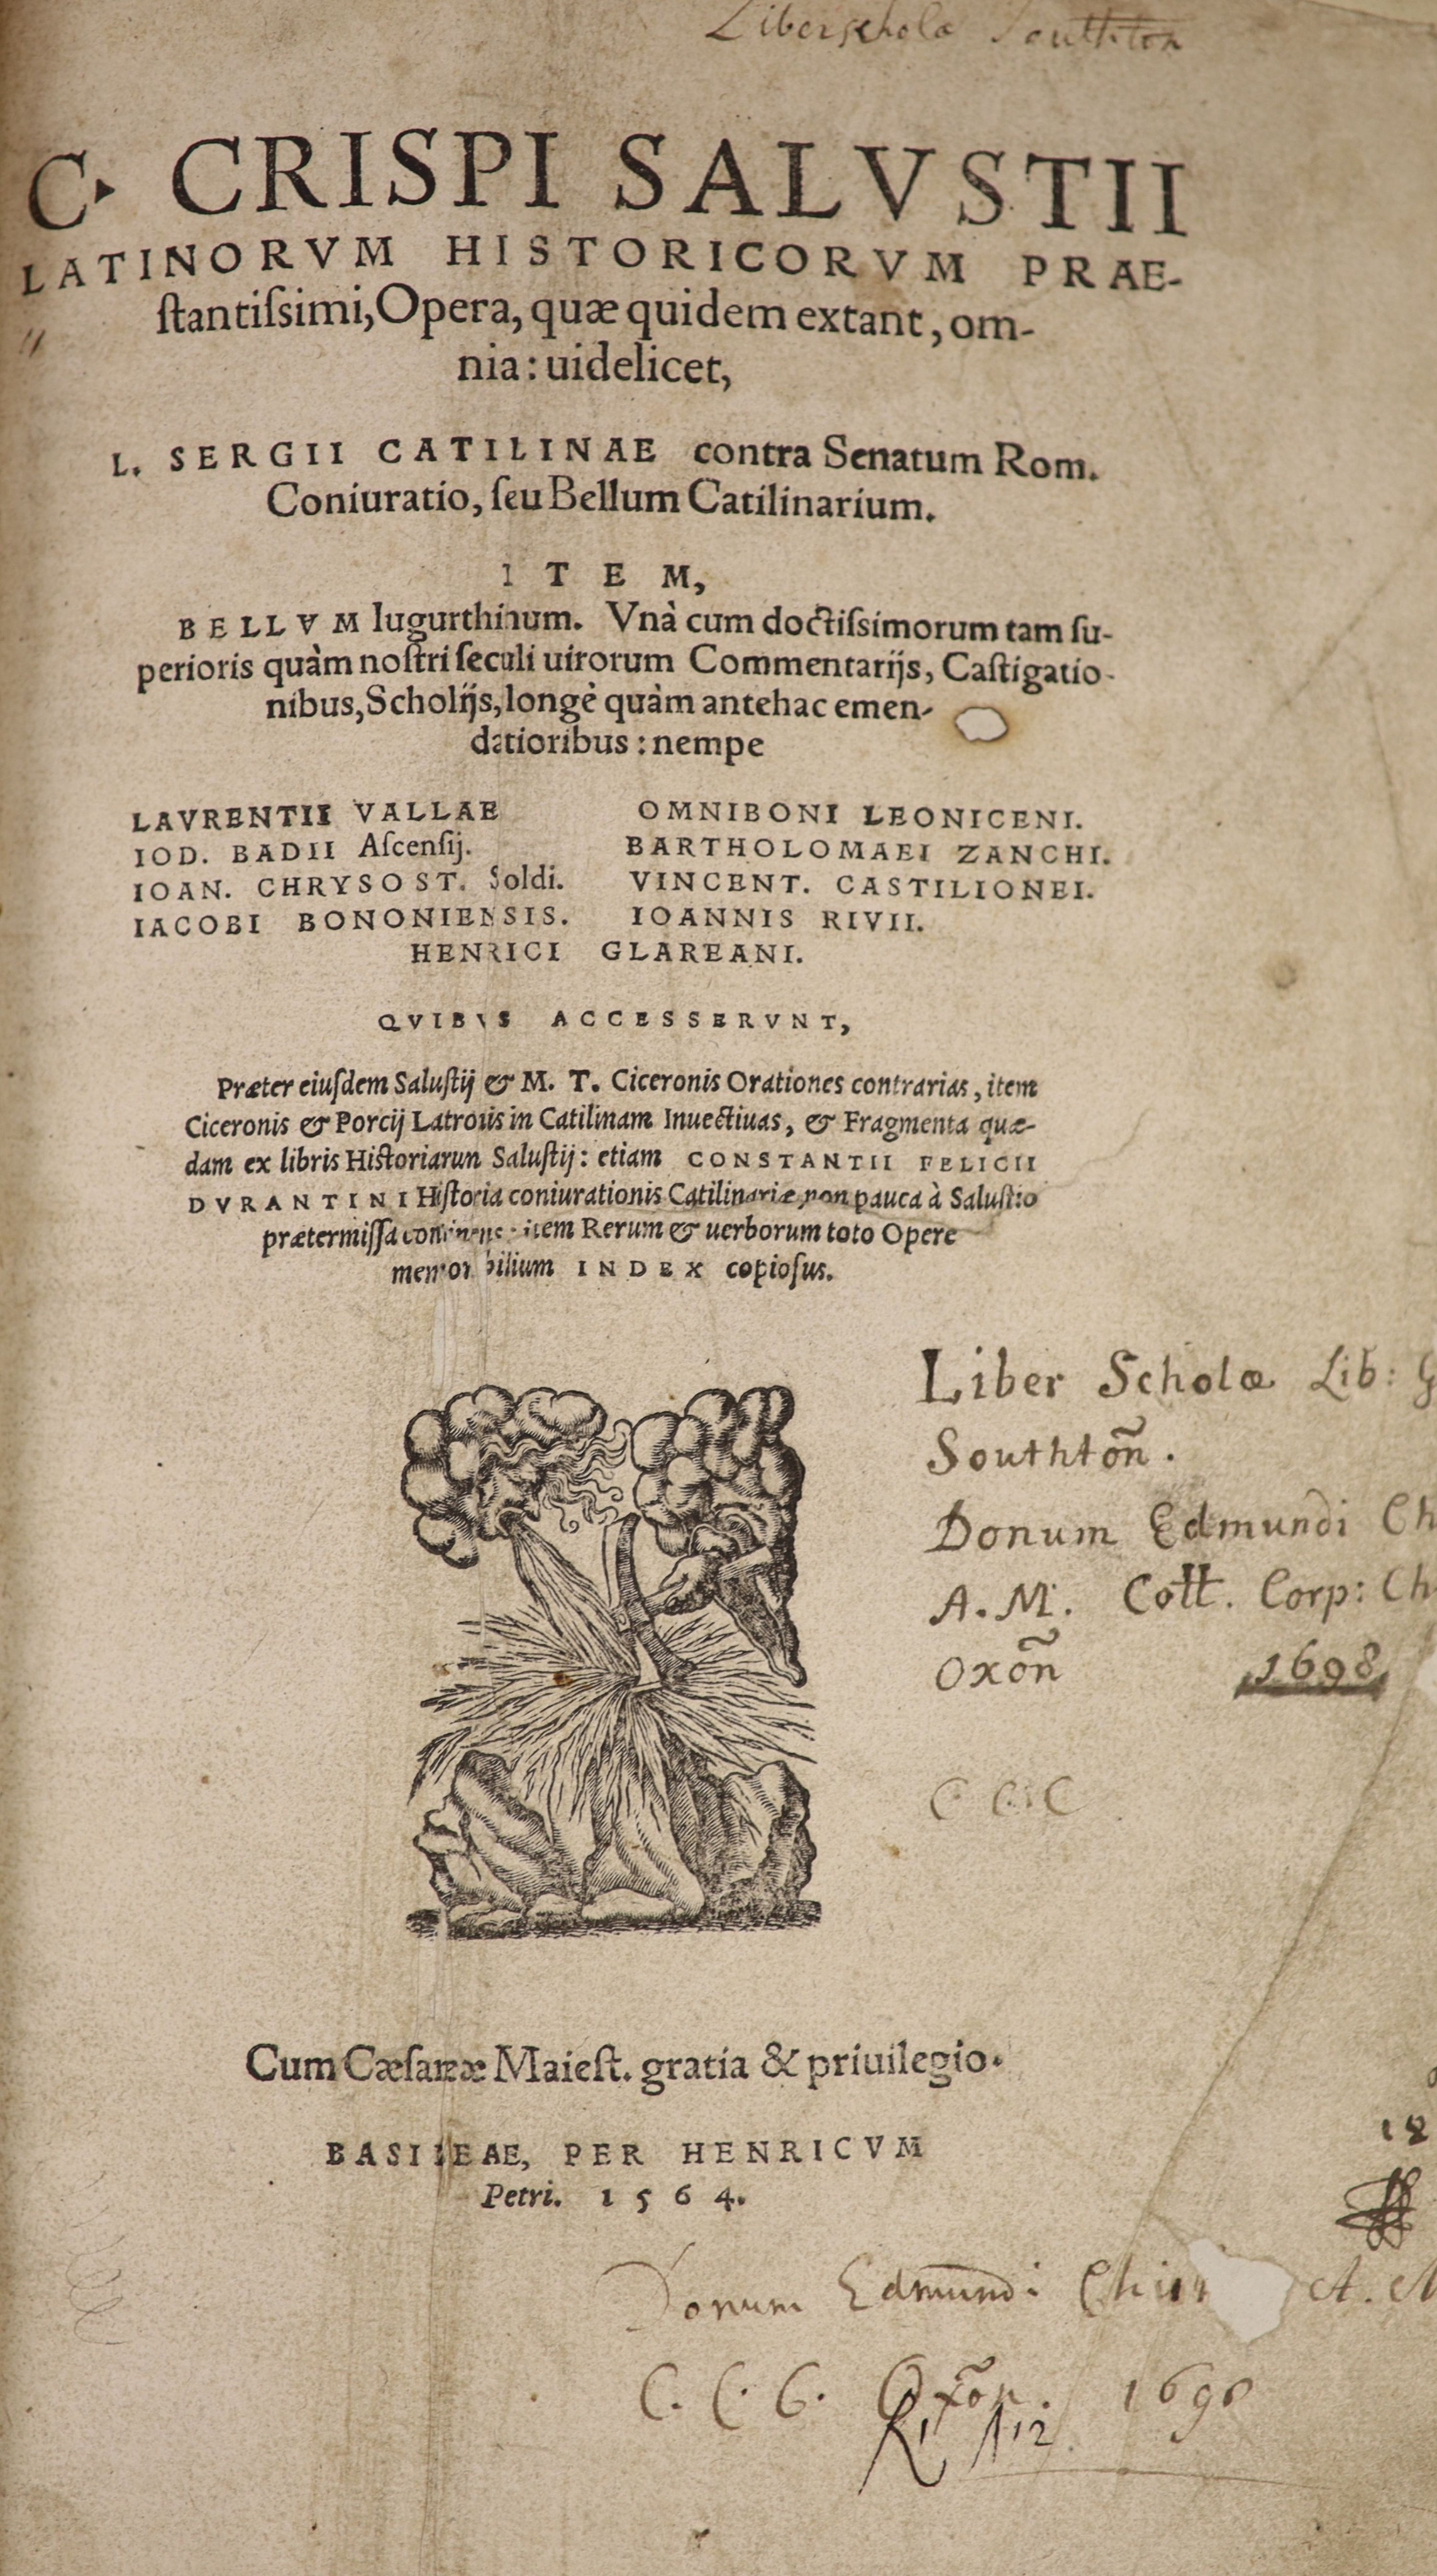 Liber schola Southton
C. CRISPI SALVSTII
LATINORVM HISTORICORVM PRAE-
ſtantiſsimi, Opera, quæ quidem extant, om-
nia: uidelicet,
L. SERGII CATILINAE contra Senatum Rom.
Coniuratio, ſeu Bellum Catilinarium.
ITEM,
BELLVM Iugurthinum. Vnà cum doctiſsimorum tam ſu-
perioris quàm noſtri ſeculi uirorum Commentarijs, Caſtigatio-
nibus, Scholijs, longè quàm antehac emen-
datioribus: nempe
LAVRENTII VALLAE
IOD. BADII Aſcenſij.
IOAN. CHRYSOST. Soldi.
IACOBI BONONIENSIS.
OMNIBONI LEONICENI.
BARTHOLOMAEI ZANCHI.
VINCENT. CASTILIONEI.
IOANNIS RIVII.
HENRICI GLAREANI.
QVIBVS ACCESSERVNT,
Præter eiuſdem Saluſtij & M. T. Ciceronis Orationes contrarias, item
Ciceronis & Porcij Latronis in Catilinam Inuectiuas, & Fragmenta quæ-
dam ex libris Hiſtoriarum Saluſtij: etiam CONSTANTII FELICII
DVRANTINI Hiſtoria coniurationis Catilinariæ, non pauca à Saluſtio
prætermiſſa continens: item Rerum & uerborum toto Opere
memorabilium INDEX copioſus.
Liber Scholæ Lib: G
Southtoñ.
Donum Edmundi Ch
A.M. Coll. Corp: Ch
Oxoñ 1698
C C C
Cum Cæſareæ Maieſt. gratia & priuilegio.
BASILEAE, PER HENRICVM
Petri. 1564.
12
Donum Edmundi A. M
C. C. C. Oxoñ. 1698